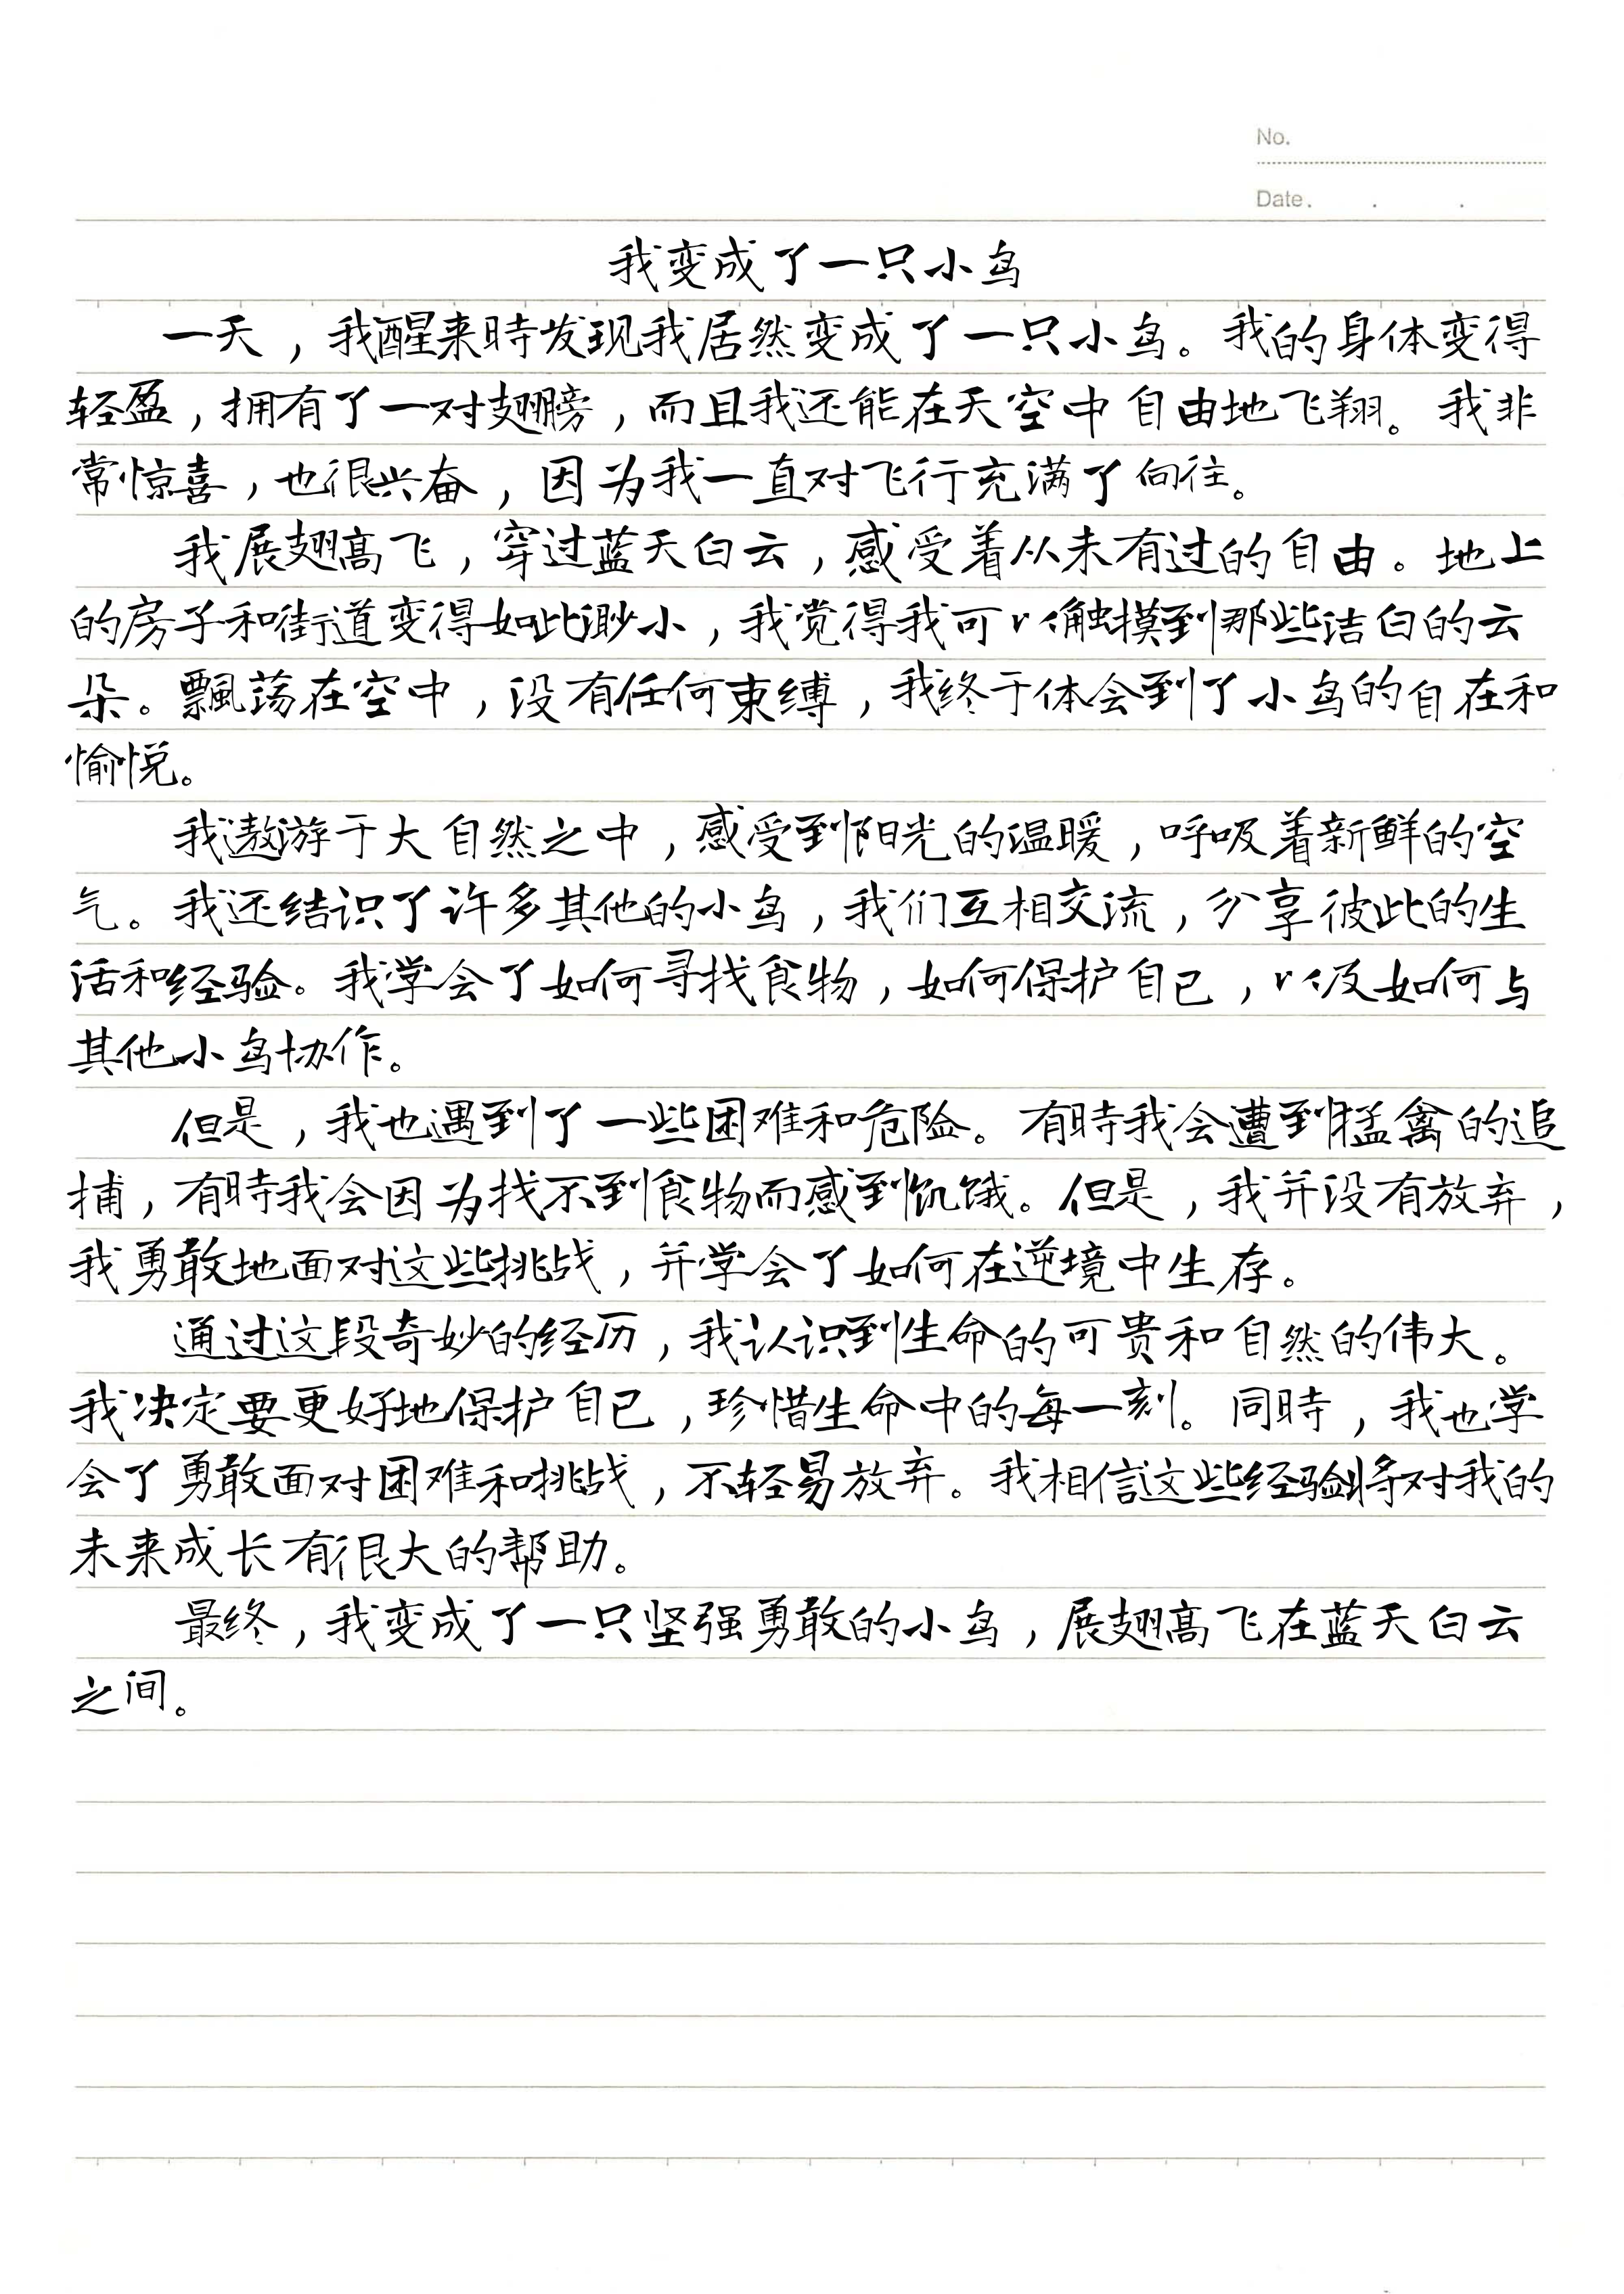 No.
Date. . .
我变成了一只小鸟
一天，我醒来時发现我居然变成了一只小鸟。我的身体变得
轻盈，拥有了一对翅膀，而且我还能在天空中自由地飞翔。我非
常惊喜，也很兴奋，因为我一直对飞行充满了向往。
我展翅高飞，穿过蓝天白云，感受着从未有过的自由。地上
的房子和街道变得如此渺小，我觉得我可以触摸到那些洁白的云
朵。飄荡在空中，没有任何束缚，我终于体会到了小鸟的自在和
愉悦。
我遨游于大自然之中，感受到阳光的温暖，呼吸着新鲜的空
气。我还结识了许多其他的小鸟，我们互相交流，分享彼此的生
活和经验。我学会了如何寻找食物，如何保护自己，以及如何与
其他小鸟协作。
但是，我也遇到了一些困难和危险。有時我会遭到猛禽的追
捕，有時我会因为找不到食物而感到饥饿。但是，我并没有放弃，
我勇敢地面对这些挑战，并学会了如何在逆境中生存。
通过这段奇妙的经历，我认识到生命的可贵和自然的伟大。
我决定要更好地保护自己，珍惜生命中的每一刻。同時，我也学
会了勇敢面对困难和挑战，不轻易放弃。我相信这些经验将对我的
未来成长有很大的帮助。
最终，我变成了一只坚强勇敢的小鸟，展翅高飞在蓝天白云
之间。